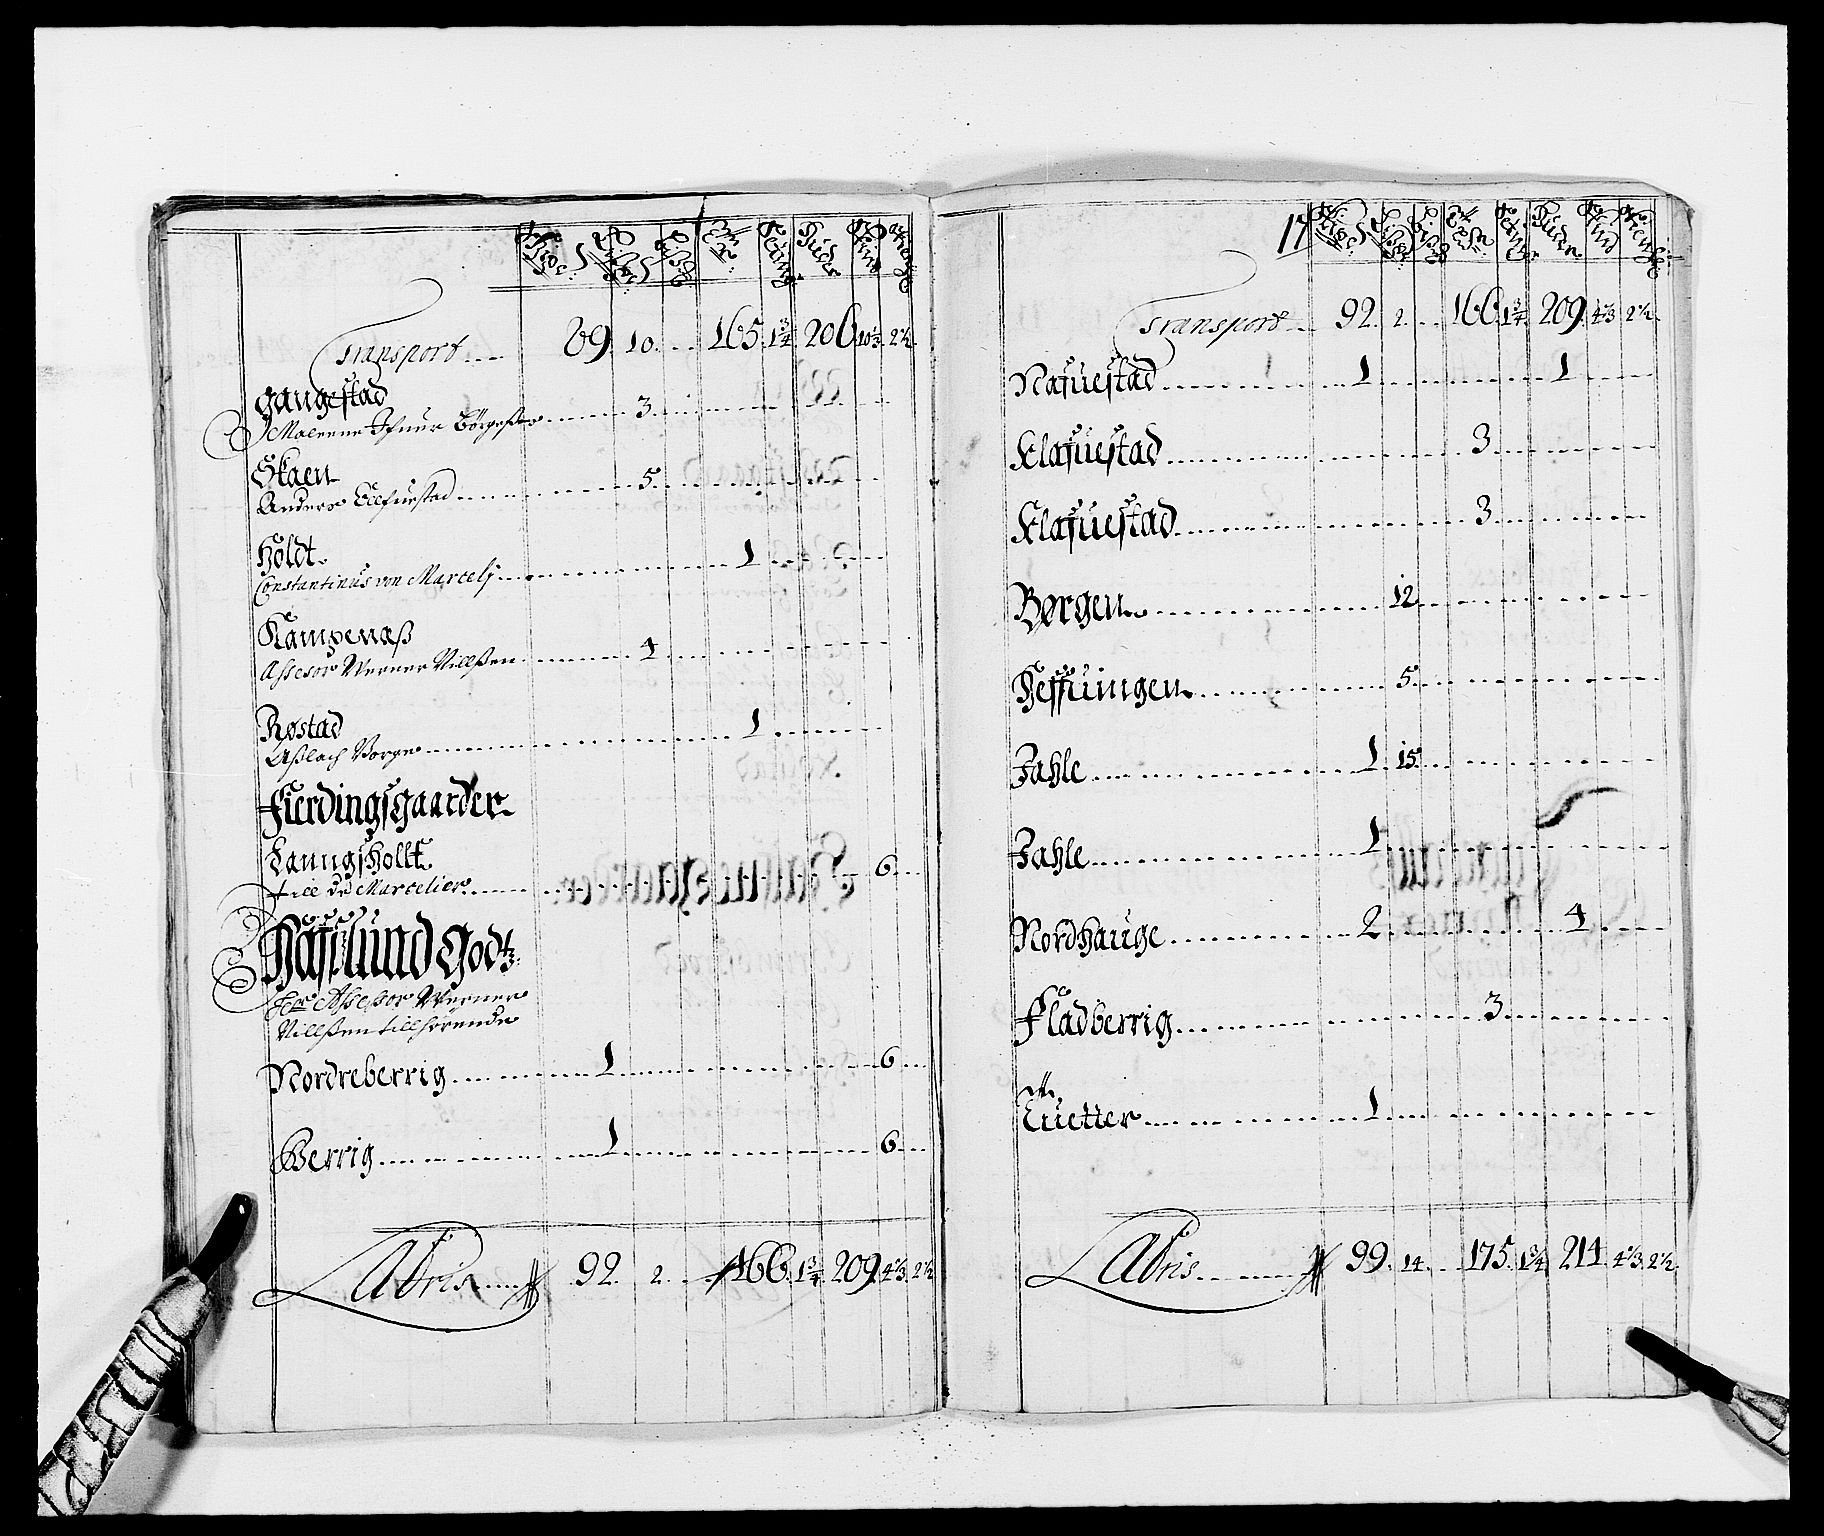 Transport.... 89. 10. ... 165. 1¾ 206. 10⅓. 2½.
Haugestad
Maleene Ifuur Børgeßen ........ 3.
Skaen
Anders Ellefuestad ........ 5.
Holdt.
Constantinus von Marcelj ........ 1
Kampenæß
Assesor Werner Nillßen ........ 4
Røstad
Aßlach Borge ........ 1
Fierdingsgaarder
Laungsholtt
till de Marcelier ........ 6
Hafslund Godtz.
Her Assessor Werner
Nillßen tillhørende
Nordreberrig ........ 1 ........ 6
Berrig ........ 1 ........ 6
Labris ........ 92. 2. ... 166. 1¾ 209. 4⅓. 2½
17
Transport... 92. 2. ... 166. 1¾ 209. 4⅓ 2½.
Nafuestad ........ 1 ........ 1
Klafuestad ........ 3
Klafuestad ........ 3
Børgen ........ 12
Heffuingen ........ 5
Jahle ........ 1 15
Jahle ........ 1
Nordhauge ........ 2 ........ 4
Fladberrig ........ 3
Tuetter ........ 1
Labris ........ 99. 14. ... 175. 1¾ 214. 4⅓. 2½.